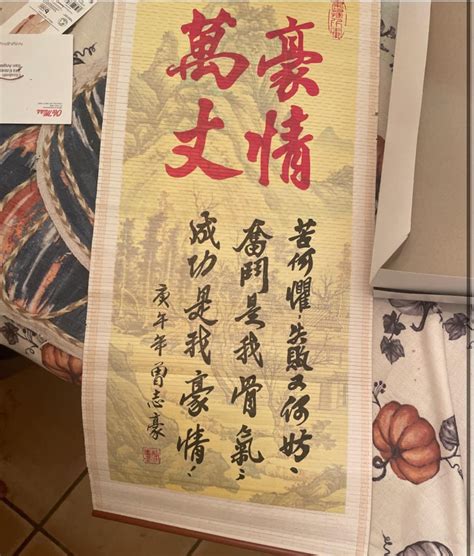 豪情
萬丈
苦何懼，失敗又何妨，
奮鬥是我骨氣；
成功是我豪情！
庚午年曾志豪
Ole Miss